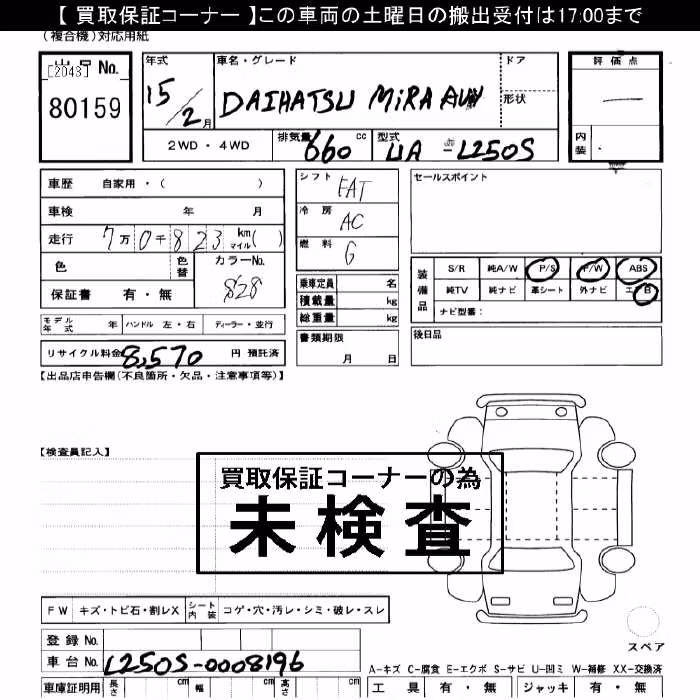 【 買取保証コーナー 】この車両の土曜日の搬出受付は17:00まで
(複合機)対応用紙
出品No.
[2043]
80159
年式
15/2月
車名・グレード
DAIHATSU MiRA AVY
ドア
形状
評価点
内装
2WD・4WD
排気量 660 cc
型式 UA-L250S
車歴 自家用・( )
車検 年 月
走行 7万0千823 km マイル( )
色
色替
カラーNo.
S28
保証書 有・無
シフト FAT
冷房 AC
燃料 G
乗車定員 名
積載量 kg
総重量 kg
セールスポイント
装備品
S/R 純A/W P/S P/W ABS
純TV 純ナビ 革シート 外ナビ エアB
ナビ型番:
モデル年式 年 ハンドル 左・右 ディーラー・並行
書類期限
月 日
後日品
リサイクル料金 8,570 円 預託済
【出品店申告欄(不良箇所・欠品・注意事項等)】
【検査員記入】
買取保証コーナーの為
未検査
FW キズ・トビ石・割レX シート内装 コゲ・穴・汚レ・シミ・破レ・スレ
スペア
登録No.
車台No. L250S-0008196
A-キズ C-腐食 E-エクボ S-サビ U-凹ミ W-補修 XX-交換済
車庫証明用 長さ cm 幅 cm 高さ cm
工具 有・無 ジャッキ 有・無